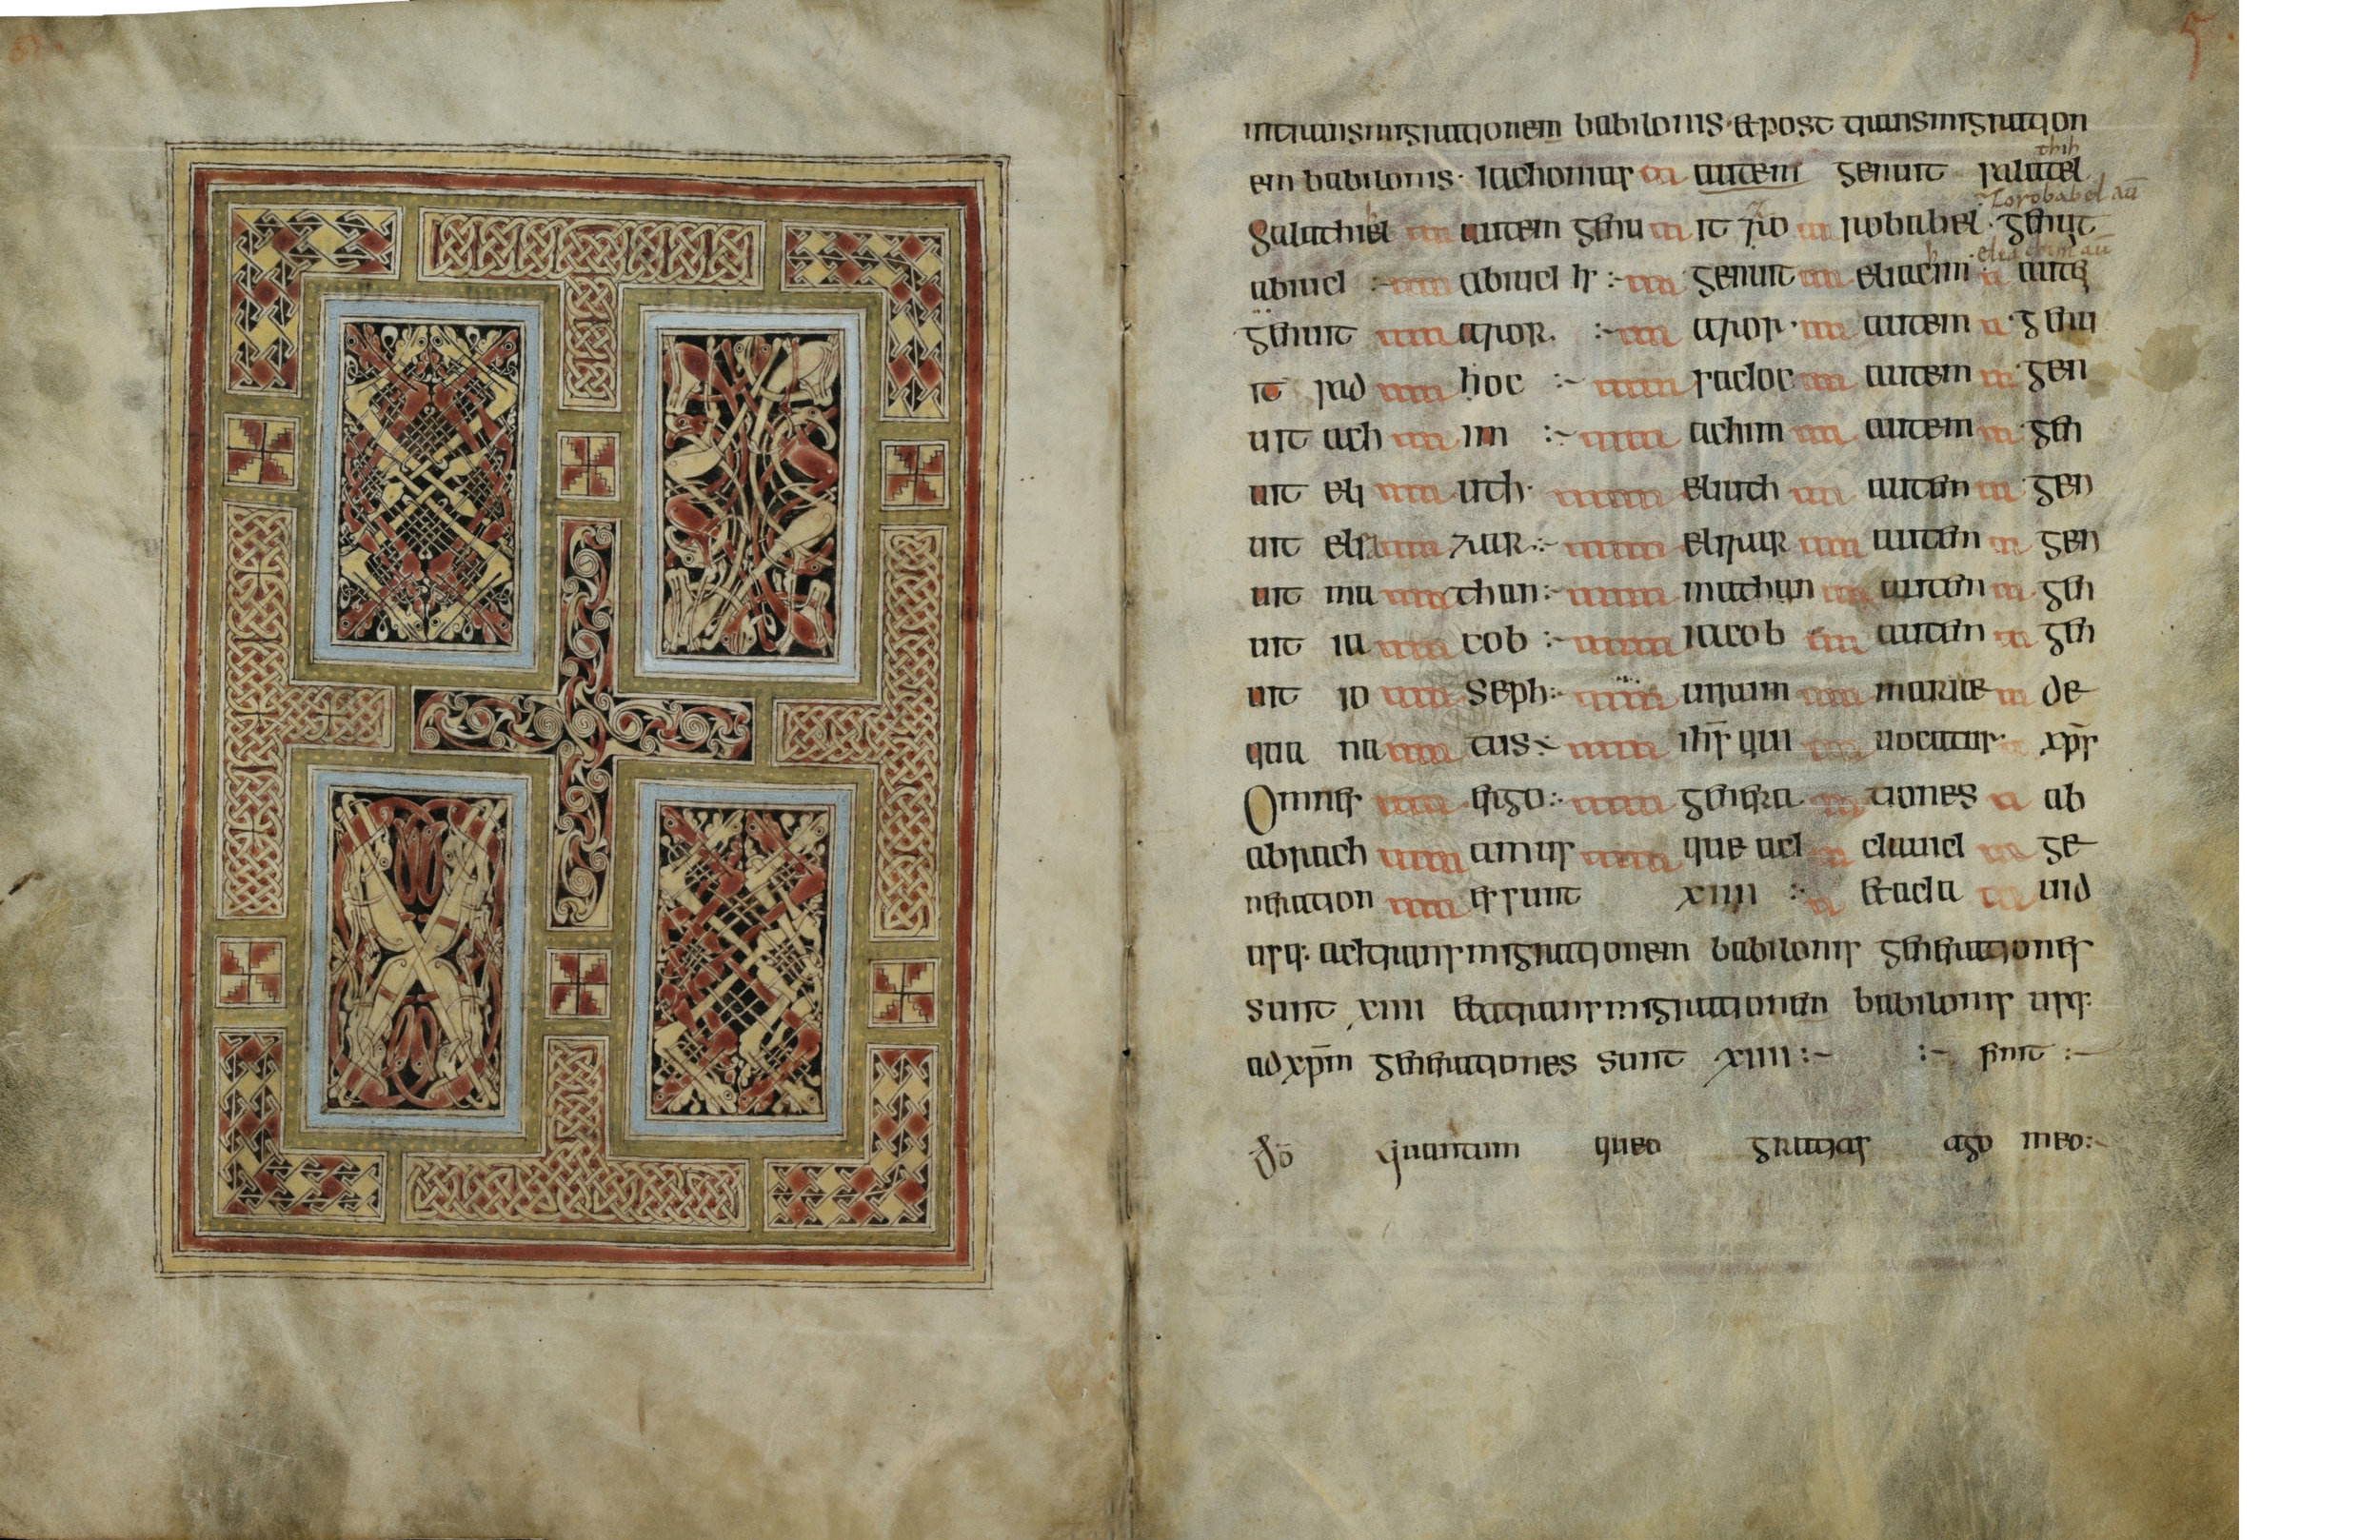 5
intransmigrationem babilonis · et post transmigration
thih
em babilonis · iachonias autem genuit salatel
Zorobabel aū
Salathiel autem genu it zo robabel · genuit
eliachim aū
abiud :~ abiud h :~ genuit eliacim autē
genuit azor. :~ azor · autem · genu
it sad hoc :~ sadoc autem · gen
uit ach im :~ achim autem · gen
uit eli uth · eliuth autem · gen
uit eli zar :~ eliazar autem gen
uit ma than :~ mathan autem gen
uit ia cob :~ iacob autem gen
uit io seph :~ uirum mariae de
qua na tus :~ ihs̄ qui uocatur xp̄s
Omnes ergo :~ genera tiones ab
abrach amus que ad dauid ge
neration es sunt xiiii :· et ada uid
usq: ad transmigrationem babilonis generationes
sunt xiiii et a transmigrationem babilonis usq:
ad xp̄m generationes sunt xiiii :~ :~ finit :~
dō quantum queo gratias ago meo :~